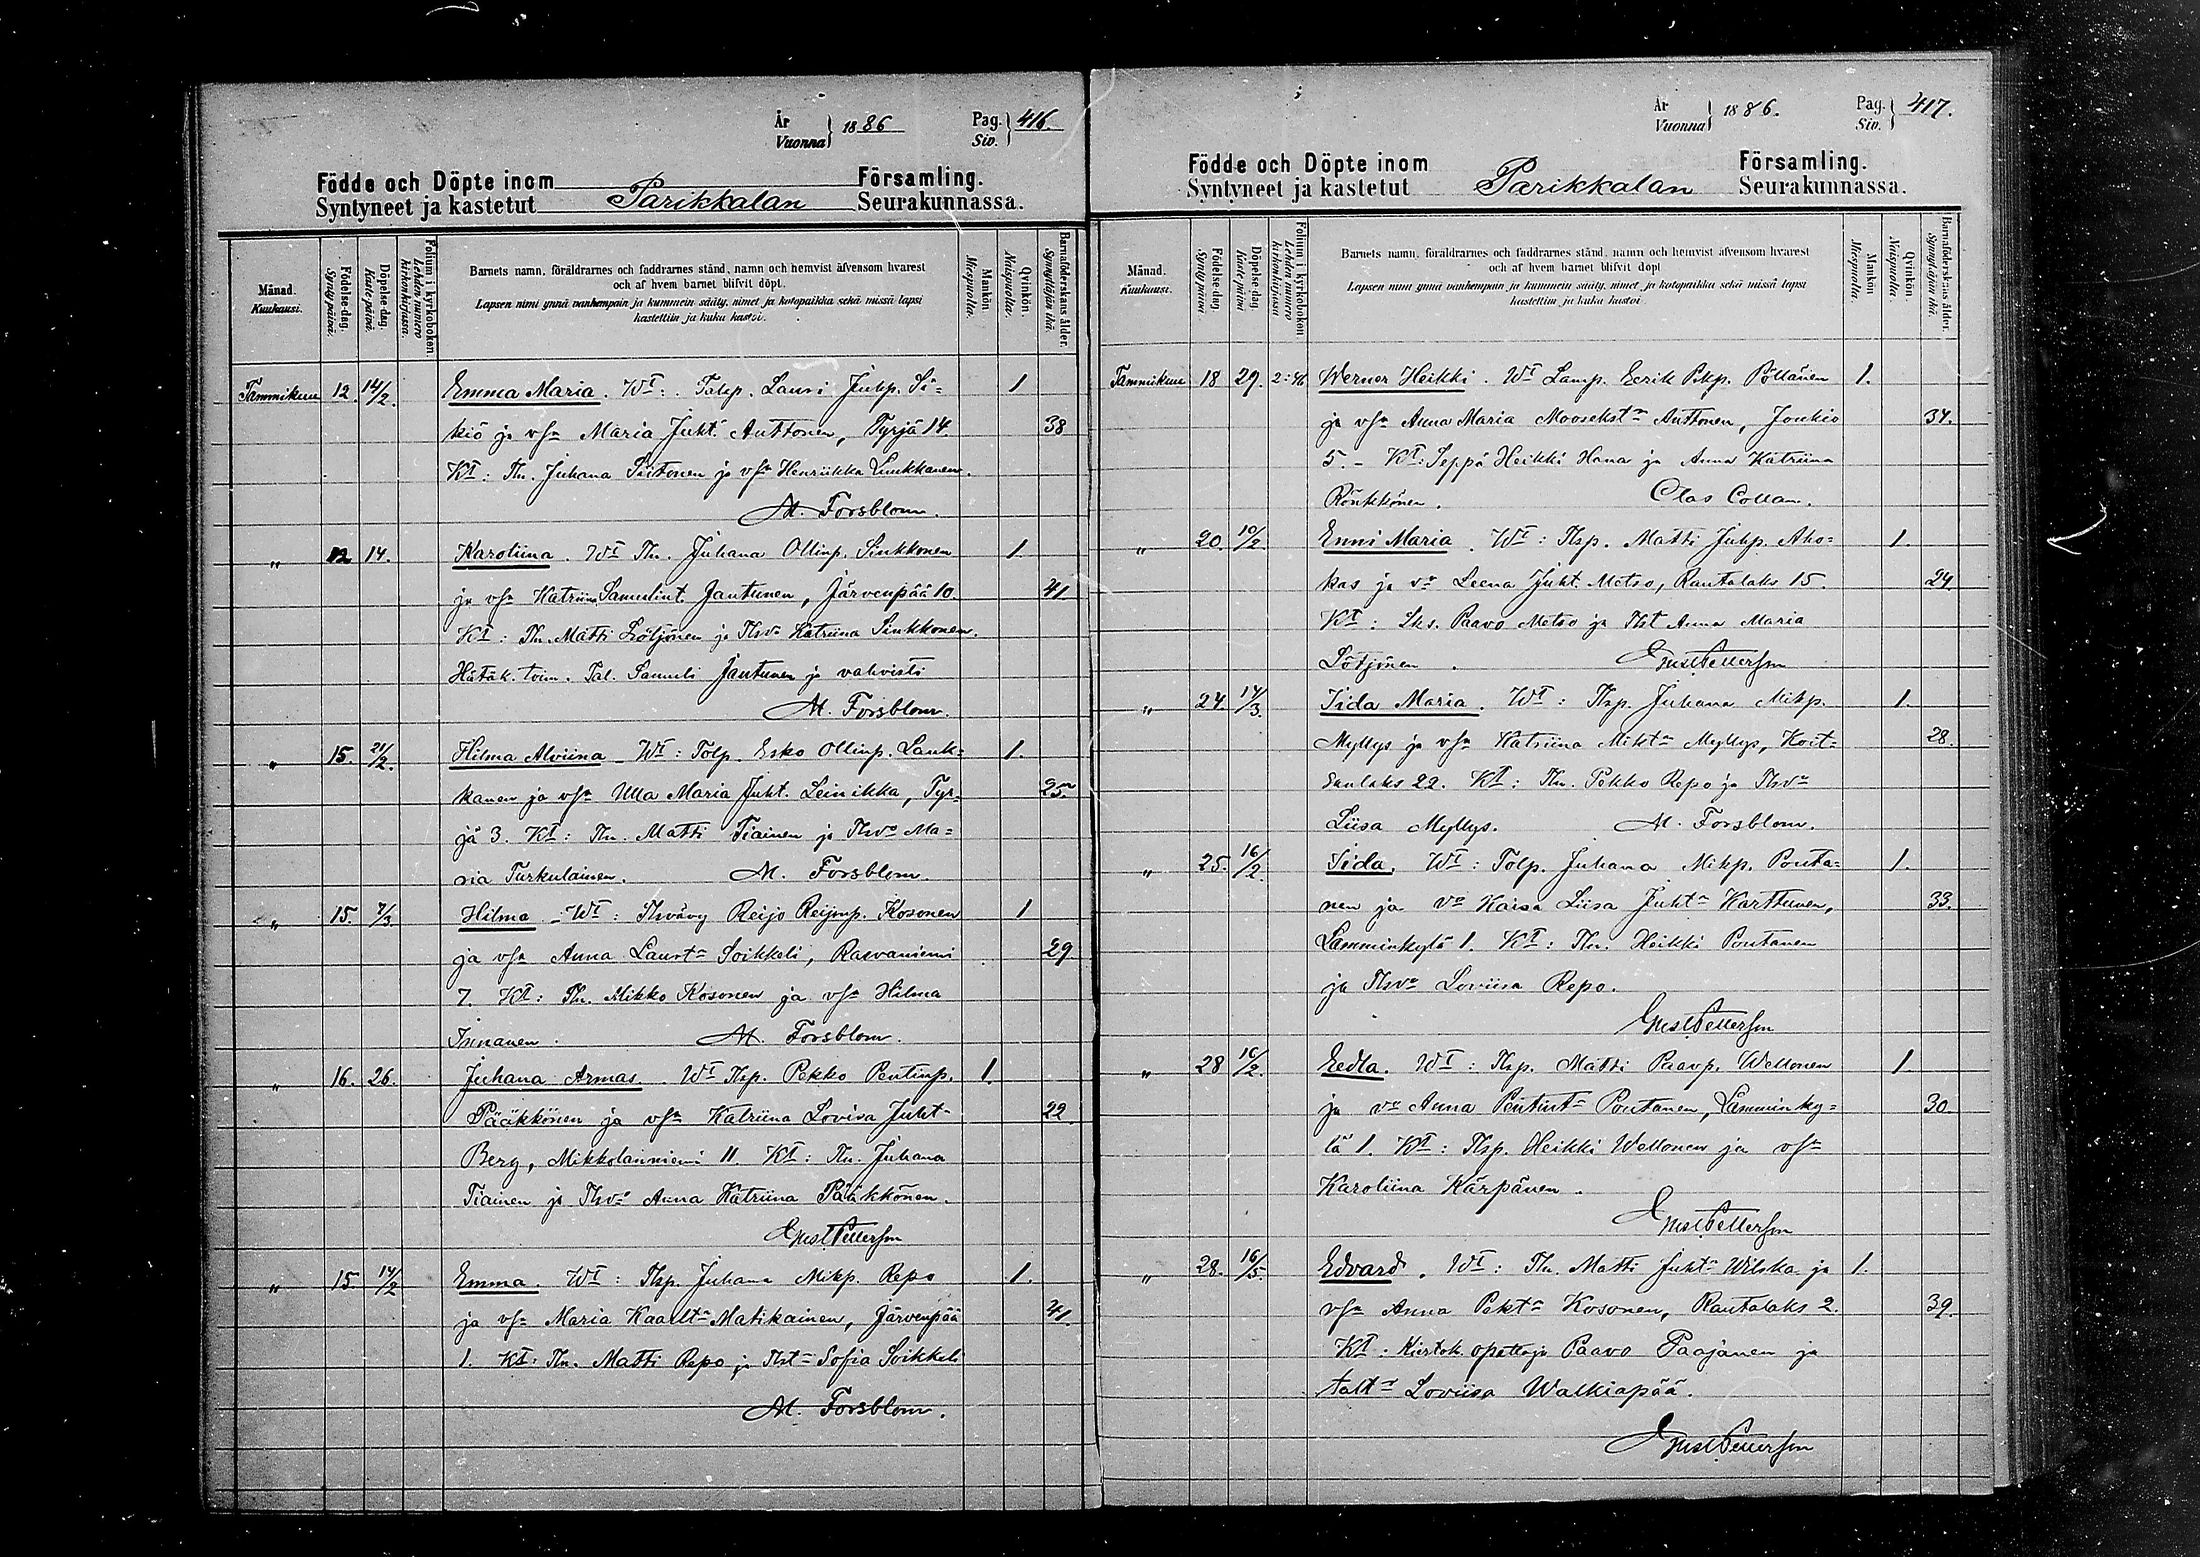 År
Vuonna } 1886
Pag.
Siv. } 416.
Födde och Döpte inom Församling.
Syntyneet ja kastetut Parikkalan Seurakunnassa.
Månad. Kuukausi.
Födelse-dag. Syntypäivä.
Döpelse-dag. Kaste-päivä.
Folium i kyrkoboken. Lehden numero kirkonkirjassa.
Barnets namn, föräldrarnes och faddrarnes stånd, namn och hemvist äfvensom hvarest
och af hvem barnet blifvit döpt.
Lapsen nimi ynnä vanhempain ja kummein sääty, nimet ja kotopaikka sekä missä lapsi
kastettiin ja kuka kastoi.
Mankön Miespuolia.
Qvinkön. Naispuolia.
Barnaföderskans ålder. Synnyttäjän ikä.
Tammikuu 12. 14/2. Emma Maria. Wt: Talp. Lauri Juhp. Si= 1
kiö ja vsa Maria Juht. Anttonen, Tyrjä 14. 38
Kt: Tln. Juhana Siitonen ja vsa Henriikka Linkkanen.
M. Forsblom.
" 12 14. Karoliina. Wt Tln. Juhana Ollinp. Sinkkonen 1.
ja vsa Katriina Samulint. Jantunen, Järvenpää 10. 41.
Kt: Tln. Matti Lötjönen ja Tlsva Katriina Sinkkonen.
Hätäk. toim. Tal. Samuli Jantunen ja vahvisti
M. Forsblom.
" 15. 21/2. Hilma Alviina Wt: Tolp. Esko Ollinp. Lauk= 1.
kanen ja vsa Ulla Maria Juht. Leinikka, Tyr= 25
jä 3. Kt: Tln. Matti Tiainen ja Tlsva Ma=
ria Turkulainen. M. Forsblom.
" 15. 7/3. Hilma Wt: Tlsvävy Reijo Reijonp. Kosonen 1
ja vsa Anna Laurta Soikkeli, Rasvaniemi 29
7. Kt: Tln. Mikko Kosonen ja vsa Hilma
Innanen. M. Forsblom.
" 16. 26. Juhana Armas. Wt Tlsp. Pekko Pentinp. 1.
Pääkkönen ja vsa Katriina Lovisa Juht- 22.
Berg, Mikkolanniemi 11. Kt: Tln. Juhana
Tiainen ja Tlsva Anna Katriina Pääkkönen.
Gust Petterson
" 15. 14/2 Emma. Wt: Tlsp. Juhana Mikp. Repo 1.
ja vsa Maria Kaallta Matikainen, Järvenpää 41.
1. Kt: Tln. Matti Repo ja Tlst- Sofia Soikkeli
M. Forsblom.
År
Vuonna } 1886.
Pag.
Siv. } 417.
Födde och Döpte inom Församling.
Syntyneet ja kastetut Parikkalan Seurakunnassa.
Månad. Kuukausi.
Födelse-dag. Syntypäivä.
Döpelse-dag. Kaste-päivä
Folium i kyrkoboken. Lehden numero kirkonkirjassa
Barnets namn, föräldrarnes och faddrarnes stånd, namn och hemvist äfvensom hvarest
och af hvem barnet blifvit döpt
Lapsen nimi ynnä vanhempain ja kummein sääty, nimet ja kotopaikka sekä missä lapsi
kastettiin ja kuka kastoi.
Mankön Miespuolia.
Qvinkön. Naispuolia.
Barnaföderskans ålder. Synnyttäjän ikä.
Tammikuu 18 29. Werner Heikki. Wt Lamp. Eerik Pekp. Pöllänen 1.
ja vsa Anna Maria Moosekst- Anttonen, Joukio 34.
5. - Kt: Seppä Heikki Hana ja Anna Katriina
Rönkkönen. Clas Collan.
" 20. 10/2. Enni Maria. Wt: Tlsp. Matti Juhp. Aho= 1.
kas ja va Leena Juht. Metso, Rautalaks 15. 24.
Kt: Lks. Paavo Metso ja Tlst Anna Maria
Lötjönen. Gust Petterson
" 24. 14/3. Iida Maria. Wt: Tlsp. Juhana Mikp. 1.
Myllys ja vsa Katriina Mikta Myllys, Koit= 28.
sanlaks 22. Kt: Tln. Pekko Repo ja Tlsva
Liisa Myllys. M. Forsblom.
" 25. 16/2. Iida. Wt: Tolp. Juhana Mikp. Pouta= 1.
nen ja va Kaisa Liisa Juhta Karttunen, 33.
Lamminkylä 1. Kt: Tln. Heikki Poutanen
ja Tlsva Loviisa Repo.
Gust Petterson
" 28 16/2. Eedla. Wt: Tlsp. Matti Paavp. Wellonen 1
ja va Anna Pentinta Poutanen, Lamminky= 30.
lä 1. Kt: Tlsp. Heikki Wellonen ja vsa
Karoliina Kärpänen.
Gust Petterson
" 28. 16/5. Edvard. Wt: Tln. Matti Juhta Wilska ja 1.
vsa Anna Pekta Kosonen, Rautalaks 2. 39.
Kt: Kiertok. opettaja Paavo Paajanen ja
talta Loviisa Walkiapää.
Gust Petterson